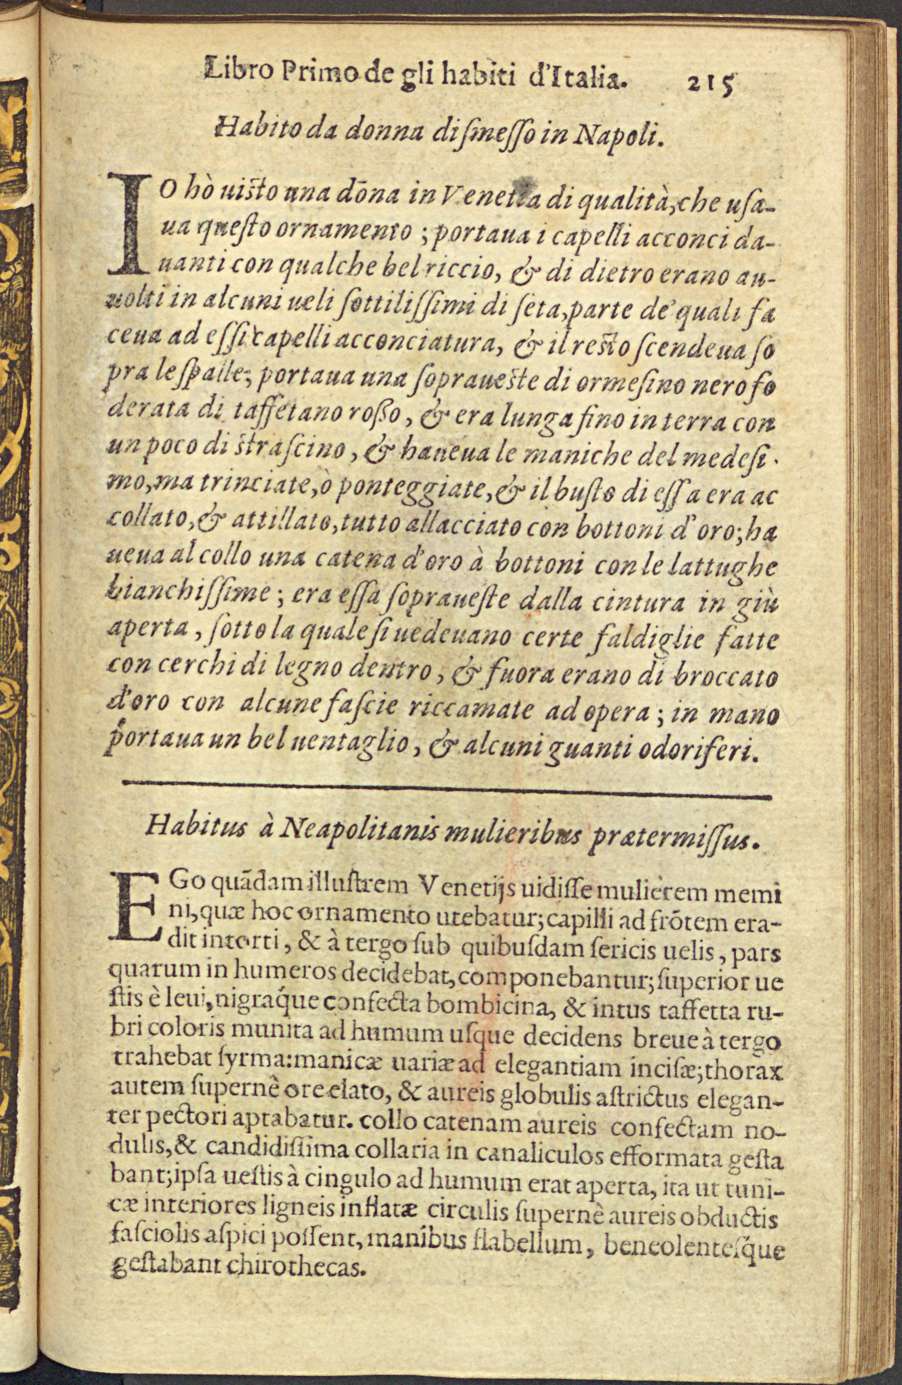 Libro Primo de gli habiti d'Italia. 215
Habito da donna dismesso in Napoli.
IO hò uisto una dōna in Venetia di qualità, che usa-
ua questo ornamento ; portaua i capelli acconci da-
uanti con qualche bel riccio, & di dietro erano au-
uolti in alcuni ueli sottilissimi di seta, parte de' quali fa
ceua ad essi capelli acconciatura, & il resto scendeua so
pra le spalle; portaua una sopraueste di ormesino nero fo
derata di taffetano roßo, & era lunga sino in terra con
un poco di strascino, & haueua le maniche del medesi-
mo, ma trinciate, ò ponteggiate, & il busto di essa era ac
collato, & attillato, tutto allacciato con bottoni d'oro; ha
ueua al collo una catena d'oro à bottoni con le lattughe
bianchissime ; era essa sopraueste dalla cintura in giù
aperta, sotto la quale si uedeuano certe faldiglie fatte
con cerchi di legno dentro, & fuora erano di broccato
d'oro con alcune fascie riccamate ad opera ; in mano
portaua un bel uentaglio, & alcuni guanti odoriferi.
Habitus à Neapolitanis mulieribus prætermissus.
EGo quādam illustrem Venetijs uidisse mulierem memi
ni, quæ hoc ornamento utebatur; capilli ad frōtem era-
dit intorti, & à tergo sub quibusdam sericis uelis, pars
quarum in humeros decidebat, componebantur; superior ue
stis è leui, nigraq́ue confecta bombicina, & intus taffetta ru-
bri coloris munita ad humum usque decidens breue à tergo
trahebat syrma: manicæ uariæ ad elegantiam incisæ; thorax
autem supernè ore elato, & aureis globulis astrictus elegan-
ter pectori aptabatur. collo catenam aureis confectam no-
dulis, & candidissima collaria in canaliculos efformata gesta
bant; ipsa uestis à cingulo ad humum erat aperta, ita ut tuni-
cæ interiores ligneis inflatæ circulis supernè aureis obductis
fasciolis aspici possent, manibus flabellum, beneolentesq́ue
gestabant chirothecas.